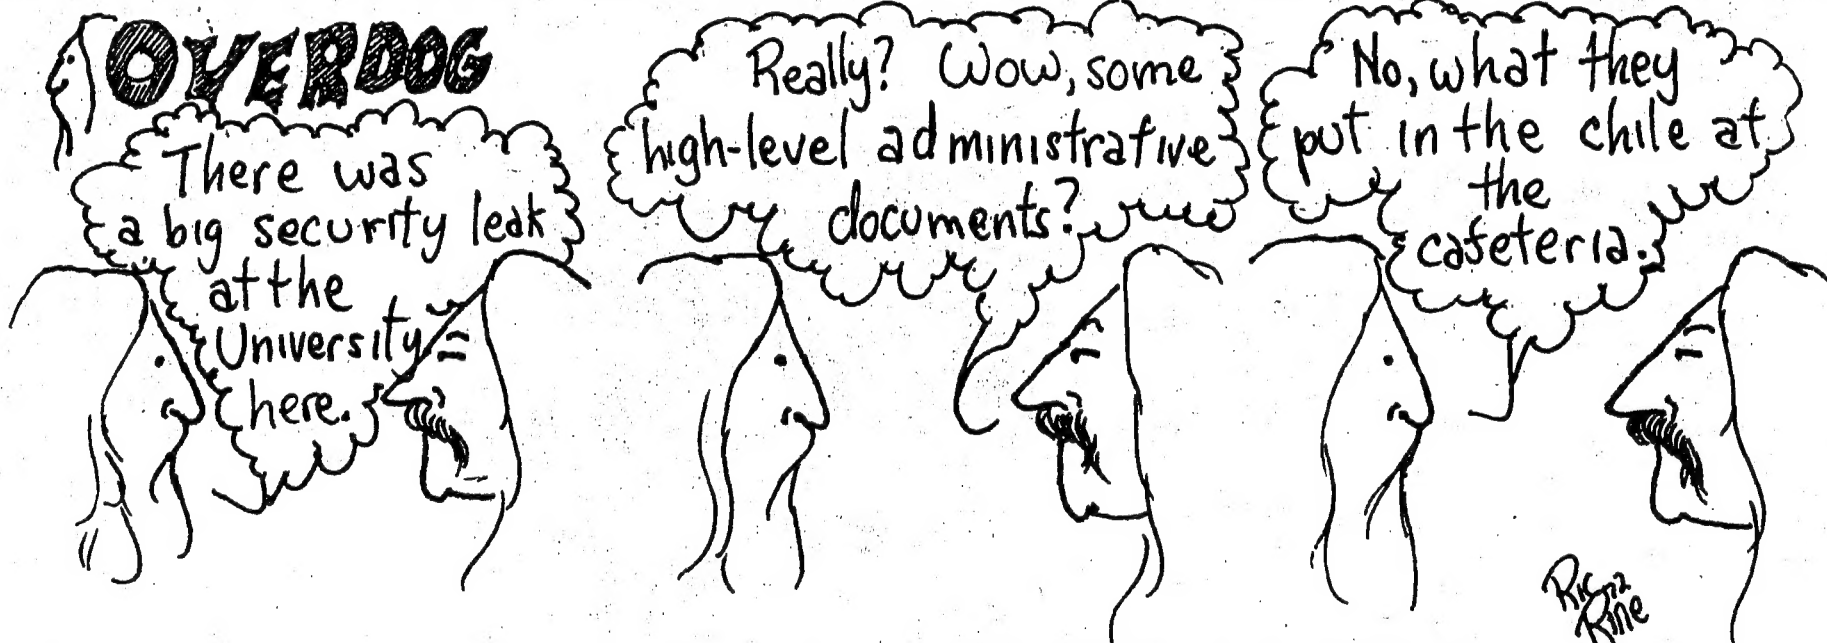 OVERDOG
There was
a big security leak
at the
University
here.
Really? Wow, some
high-level administrative
documents?
No, what they
put in the chile at
the
cafeteria.
Ric 72
Rine